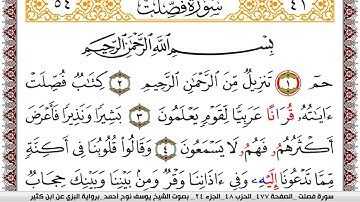 ٥٤ سُورَةُ فُصِّلَتْ ٤١
بِسْمِ ٱللَّهِ ٱلرَّحْمَٰنِ ٱلرَّحِيمِ
حمٓ ١ تَنزِيلٌ مِّنَ ٱلرَّحْمَٰنِ ٱلرَّحِيمِ ٢ كِتَٰبٌ فُصِّلَتْ
ءَايَٰتُهُۥ قُرَانًا عَرَبِيًّا لِّقَوْمٍ يَعْلَمُونَ ٣ بَشِيرًا وَنَذِيرًا فَأَعْرَضَ
أَكْثَرُهُمُۥ فَهُمُۥ لَا يَسْمَعُونَ ٤ وَقَالُوا۟ قُلُوبُنَا فِىٓ أَكِنَّةٍ
مِّمَّا تَدْعُونَآ إِلَيْهِۦ وَفِىٓ ءَاذَانِنَا وَقْرٌ وَمِنۢ بَيْنِنَا وَبَيْنِكَ حِجَابٌ
سورة فصلت _ الصفحة ٤٧٧ الحزب ٤٨ _ الجزء ٢٤ _ بصوت الشيخ يوسف نوح احمد _ برواية البزي عن ابن كثير